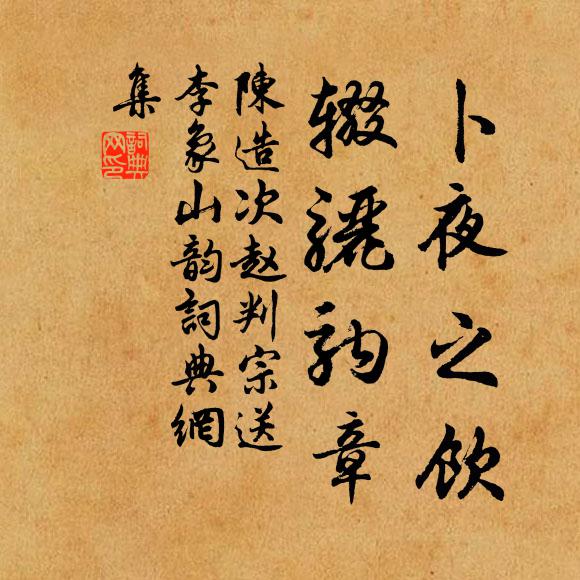 卜夜之饮
辍骊驹章
陳造次赵判宗送
李象山韵詞典網
集
詞典
网印